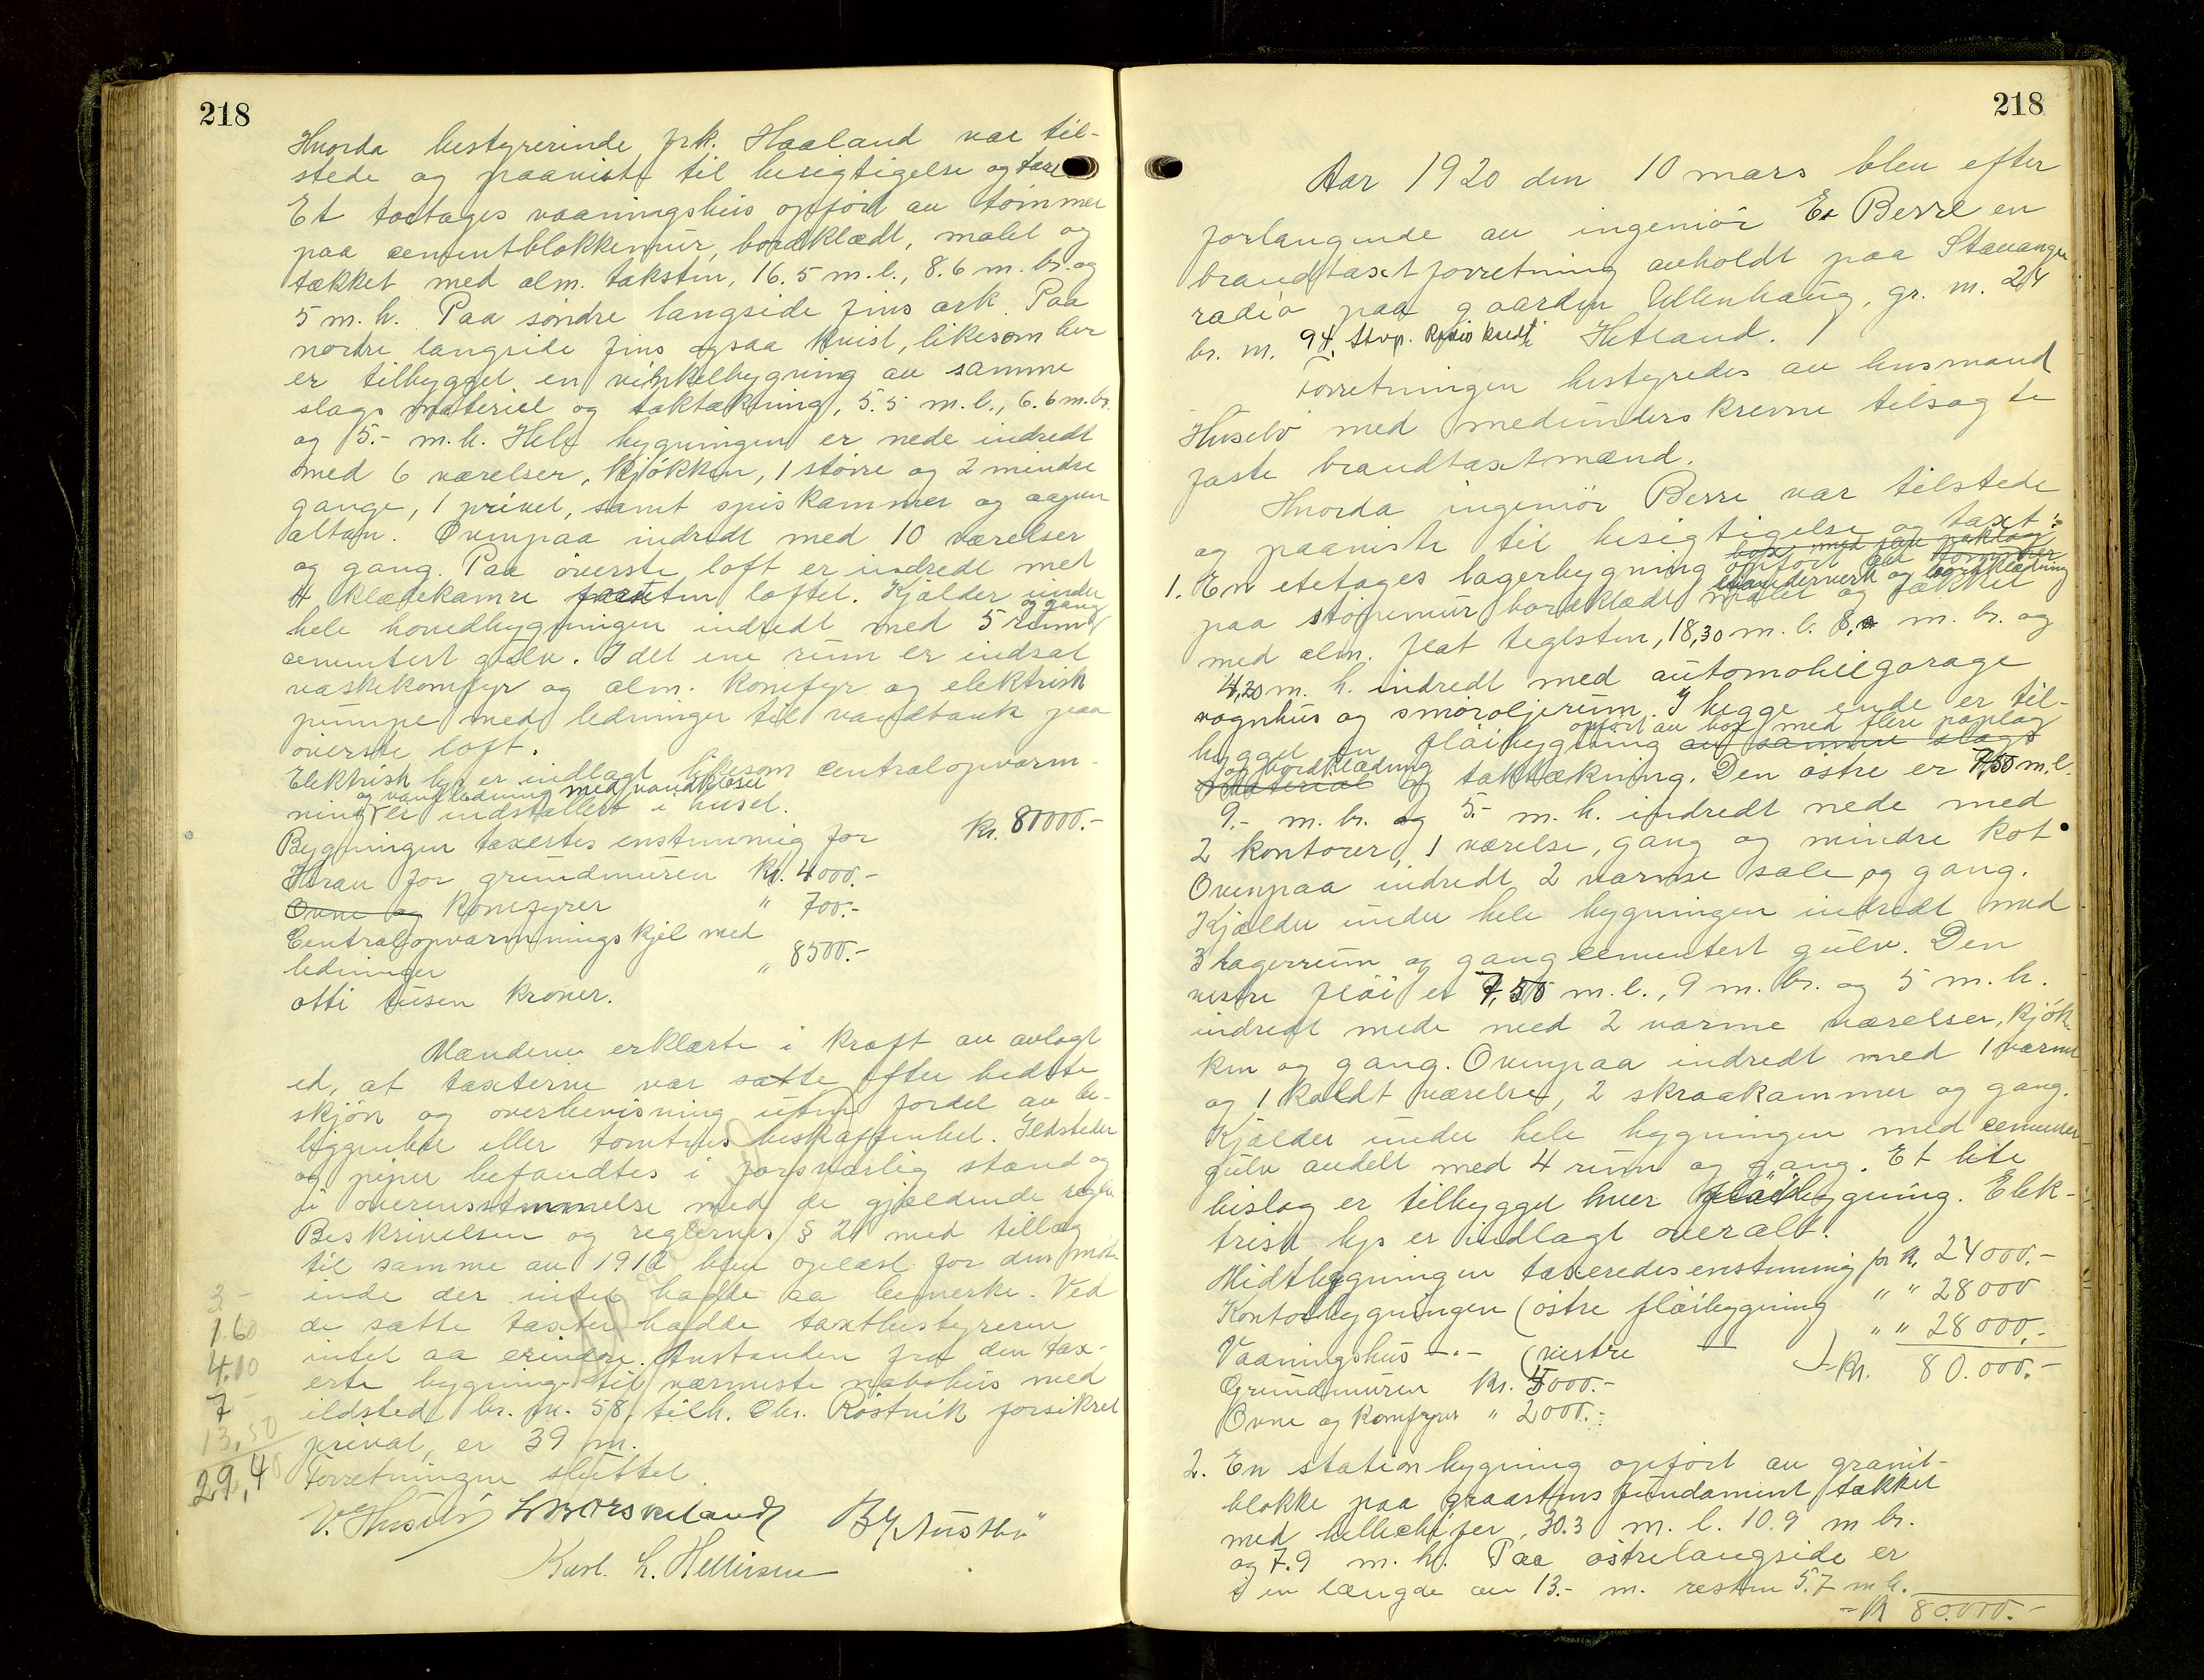 218
Hvorda bestyrerinde frk. Haaland var til-
stede og paaviste til besigtigelse og taxt
Et toetages vaaningshus opført av tømmer
paa cementblokkemur, bordklædt, malet og
tækket med alm. taksten, 16.5 m. l., 8.6 m. br. og
5 m. h. Paa søndre langside fins ark. Paa
nordre langside fins ogsaa kvist, likesom her
er tilbygget en vinkelbygning av samme
slags materiel og taktækning, 5.5 m. l., 6.6 m. br.
og 5.- m. h. Hele bygningen er nede indredt
med 6 værelser, kjøkken, 1 større og 2 mindre
gange, 1 privet, samt spiskammer og aapen
altan. Ovenpaa indredt med 10 værelser
og gang. Paa øverste loft er indredt med
4 klædekamre forøvrig loftet. Kjælder under
hele hovedbygningen indredt med 5 rum og gang
cementert gulv. I det ene rum er indsat
vaskekomfyr og alm. komfyr og elektrisk
pumpe med ledninger til vandtank paa
øverste loft.
Elektrisk lys er indlagt likesom centralopvarm-
og vandledning med vandklosel
ning er indstallert i huset.
Bygningen taxertes enstemmig for Kr. 80000.-
Herav for grundmuren Kr. 4000.-
Ovne og Komfyrer " 700.-
Centralopvarmningskjel med
ledninger " 8500.-
otti tusen kroner.
Mændene erklærte i kraft av avlagt
ed, at taxterne var satte efter bedste
skjøn og overbevisning uten fordel av be-
byggelse eller tomtens beskaffenhet. Ildsteder
og piper befandtes i forsvarlig stand og
i overensstemmelse med de gjældende regler
Beskrivelsen og reglernes § 21 med tillæg
til samme av 1912 blev oplæst for den møt-
ende der intet hadde aa bemerke. Ved
de satte taxter hadde taxtbestyreren
intet aa erindre. Avstanden fra den tax-
erte bygning til nærmeste nabohus med
ildsted br. nr. 58, tilh. Chr. Rostvik forsikret
privat, er 39 m.
Forretningen sluttet.
3.-
1.60
4.10
7 -
13,50
29,40
V. Husebø
Karl L. Hellivsen
218
Aar 1920 den 10 mars blev efter
forlangende av ingeniør Berre en
brandtaxtforretning avholdt paa Stavanger
radio paa gaarden Ullenhaug, gr. nr. 24
br. nr. 94, Stvgr. Radio kaldt i Hetland.
Forretningen bestyredes av husmand
Husebø med medunderskrevne tilsagte
faste brandtaxtmænd.
Hvorda ingeniør Berre var tilstede
og paaviste til besigtigelse og taxt:
box med flere paklag
1. En etetages lagerbygning opført av tømmer
utmurverk og bordklædning
paa støpemur bordklædt malet og tækket
med alm. flat teglsten, 18,30 m. l. 8,- m. br. og
4,20 m. h. indredt med automobilgarage
vognhus og smøroljerum. I begge ender er til-
opført av box med flere paplag
bygget en fløibygning av samme slags
og bordklædning
material og taktækning. Den østre er 7,50 m. l.
9.- m. br. og 5.- m. h. indredt nede med
2 kontorer, 1 værelse, gang og mindre kot.
Ovenpaa indredt 2 varme sale og gang.
Kjælder under hele bygningen indredt med
3 lagerrum og gang cementert gulv. Den
vestre fløi er 7,50 m. l., 9 m. br. og 5 m. h.
indredt nede med 2 varme værelser, kjøk-
ken og gang. Ovenpaa indredt med 1 varmt
og 1 koldt værelse, 2 skraakammer og gang.
Kjælder under hele bygningen med cementert
gulv avdelt med 4 rum og gang. Et lite
bislag er tilbygget hver fløibygning. Elek-
trisk lys er indlagt overalt.
Midtbygningen taxeredes enstemmig for kr. 24000.-
Kontorbygningen (østre fløibygning " " 28000
Vaaningshus -.- (vestre — ) " " 28000.-
Grundmuren Kr. 5000.- Kr. 80.000.-
Ovne og Komfyrer " 2000.-
2. En stationbygning opført av granit-
blokke paa graastens fundament tækket
med helleskifer, 30.3 m. l. 10.9 m br.
og 7.9 m. h. Paa østrelangside er
i en længde av 13.- m. resten 5.7 m h.
- Kr 80.000.-